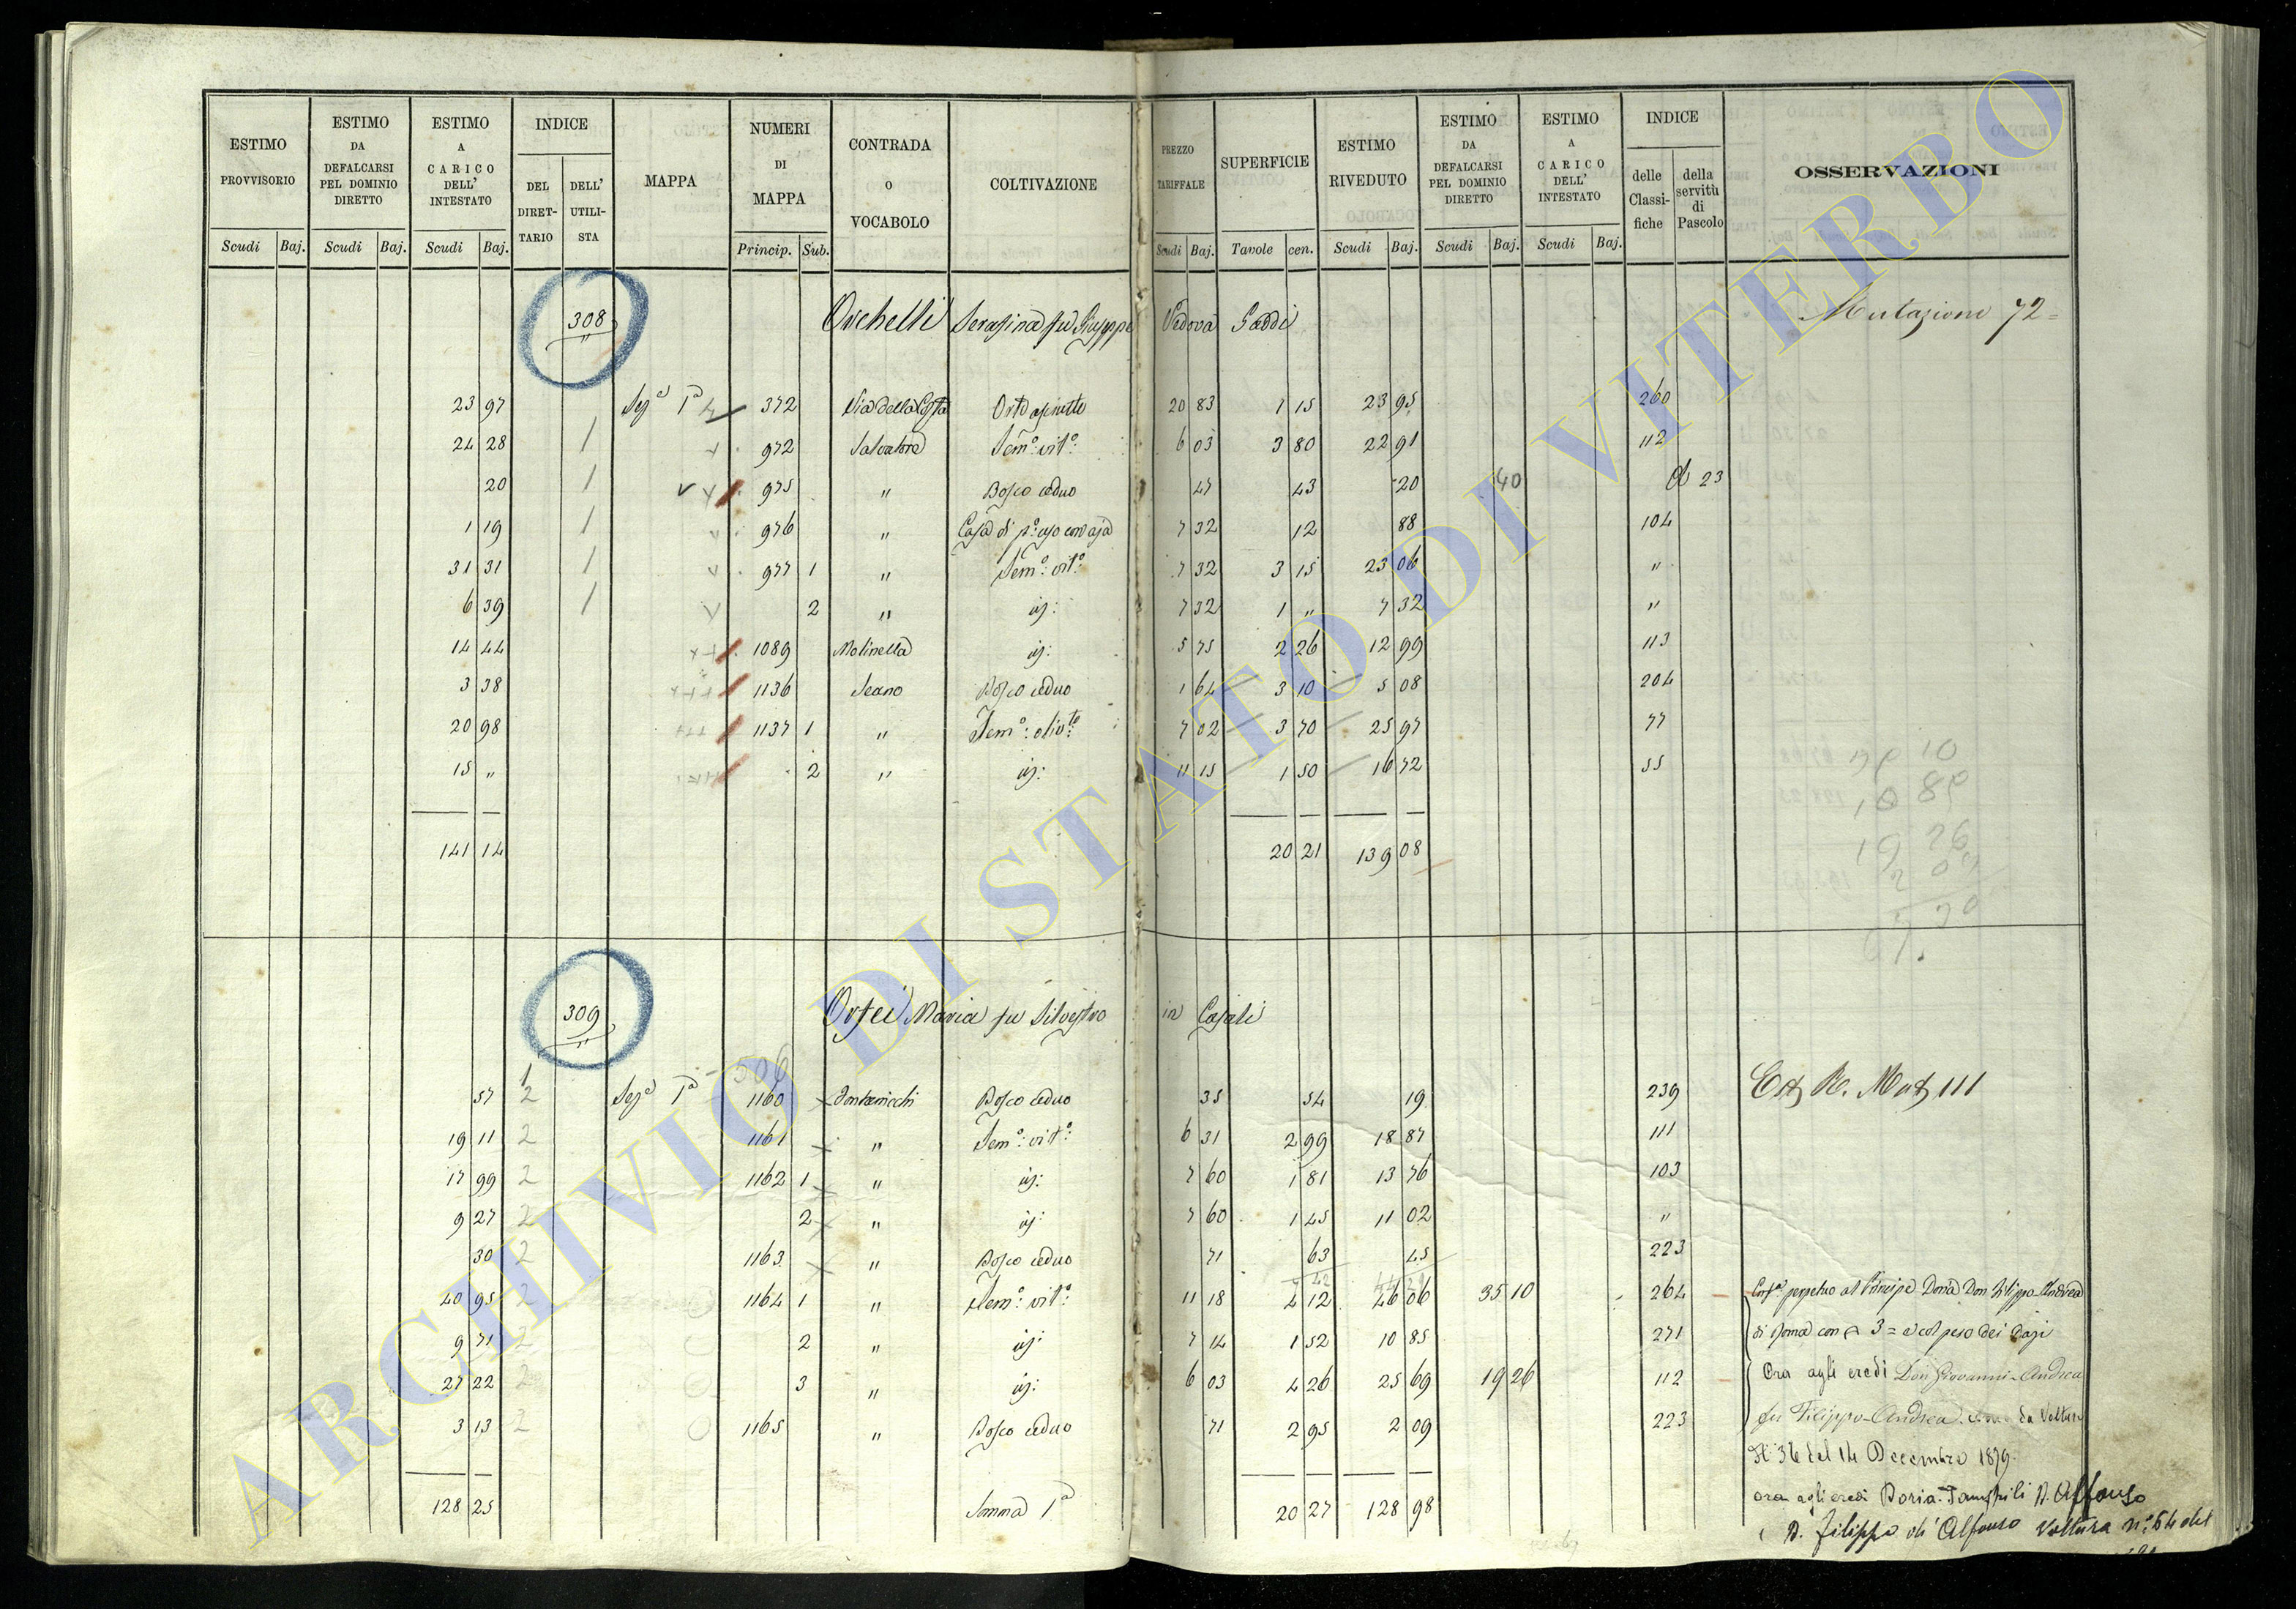 ESTIMO PROVVISORIO | ESTIMO DA DEFALCARSI PEL DOMINIO DIRETTO | ESTIMO A CARICO DELL' INTESTATO | INDICE DEL DIRET-TARIO | DELL' UTILI-STA | MAPPA | NUMERI DI MAPPA | CONTRADA O VOCABOLO | COLTIVAZIONE | PREZZO TARIFFALE | SUPERFICIE | ESTIMO RIVEDUTO | ESTIMO DA DEFALCARSI PEL DOMINIO DIRETTO | ESTIMO A CARICO DELL' INTESTATO | INDICE delle Classi-fiche | della servitù di Pascolo | OSSERVAZIONI
Scudi Baj. | Scudi Baj. | Scudi Baj. | Princip. Sub. | Scudi Baj. | Tavole cen. | Scudi Baj. | Scudi Baj. | Scudi Baj.
308 Orchelli Serafina fu Giuseppe Vedova Gaddi Mutazione 72=
23 97 Sez.e 1a 372 Via della Costa Orto asciutto 20 83 1 15 23 95 260
24 28 1 972 Salvatore Sem.o vit.o 6 03 3 80 22 91 112
20 1 975 " Bosco ceduo 47 43 20 40 23
1 19 1 976 " Casa di p.o uso con aja 7 32 12 88 104
31 31 1 977 1 " Sem.o vit.o 7 32 3 15 23 06 "
6 39 1 2 " id: 7 32 1 " 7 32 "
14 44 1089 Molinella id: 5 75 2 26 12 99 113
3 38 1136 Scano Bosco ceduo 1 64 3 10 5 08 204
20 98 1137 1 " Sem.o oliv.to 7 02 3 70 25 97 77
15 " 2 " id: 11 15 1 50 16 72 55
141 14 20 21 139 08
309 Orfei Maria fu Silvestro in Casali
306
57 2 Sez.e 1a 1160 Bosco ceduo 35 54 19 239 Est. R. Mut. 111
19 11 2 1161 " Sem.o vit.o 6 31 2 99 18 87 111
17 99 2 1162 1 " id: 7 60 1 81 13 76 103
9 27 2 2 " id: 7 60 1 45 11 02 "
30 2 1163 " Bosco ceduo 71 63 45 223
40 95 2 1164 1 " Sem.o vit.o 11 18 4 12 46 06 35 10 264 perpetuo al Principe Doria Don Filippo Andrea
9 71 2 2 " id: 7 14 1 52 10 85 271 di Roma con 3= e col peso dei dazi
27 22 2 3 " id: 6 03 4 26 25 69 19 26 112 Ora agli eredi Don Giovanni-Andrea
3 13 2 1165 " Bosco ceduo 71 2 95 2 09 223 fu Filippo-Andrea da Voltura
N. 36 del 14 Decembre 1879.
128 25 Somma 1a 20 27 128 98 ora agli eredi Doria-Pamphili D. Alfonso
D. Filippo di Alfonso Voltura n.o 64 del
ARCHIVIO DI STATO DI VITERBO